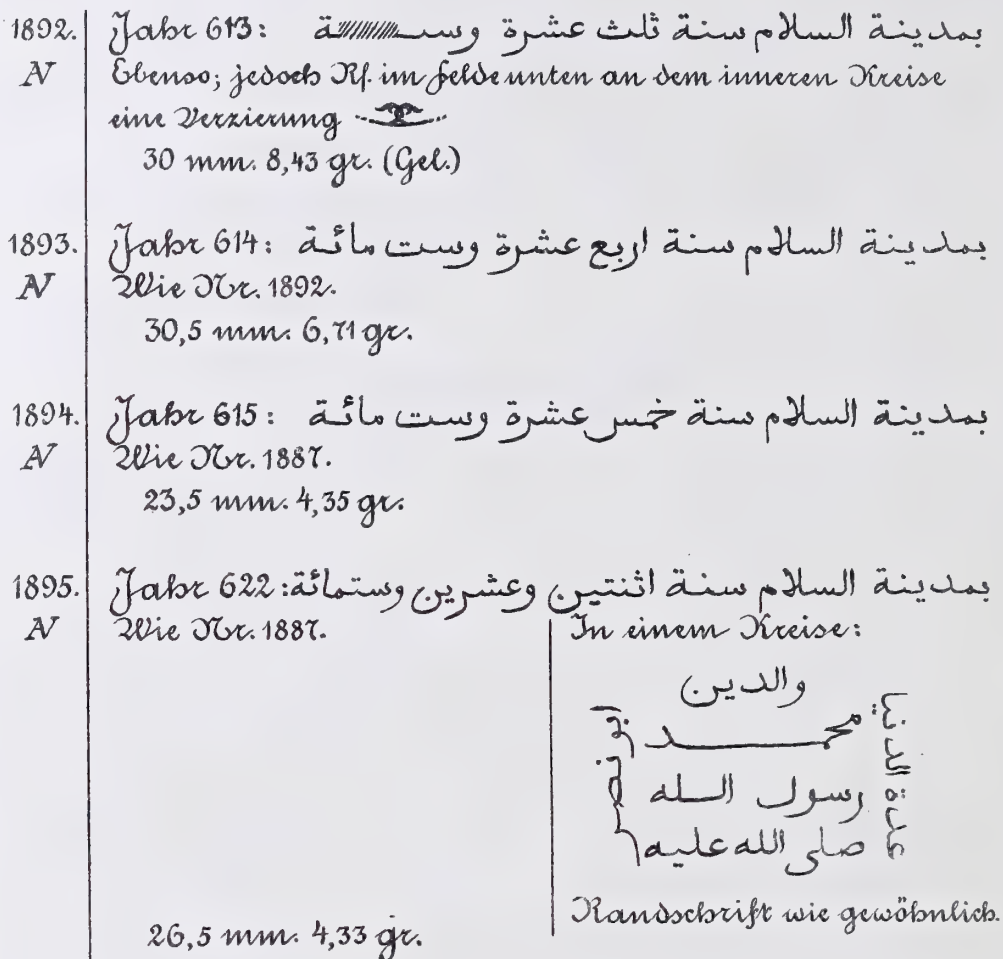 1892. Jahr 613: بمدينة السلام سنة ثلث عشرة وســـــة
AV Ebenso; jedoch Rf. im Felde unten an dem inneren Kreise
eine Verzierung
30 mm. 8,43 gr. (Gel.)
1893. Jahr 614: بمدينة السلام سنة اربع عشرة وست مائة
AV Wie Nr. 1892.
30,5 mm. 6,71 gr.
1894. Jahr 615: بمدينة السلام سنة خمس عشرة وست مائة
AV Wie Nr. 1887.
23,5 mm. 4,35 gr.
1895. Jahr 622: بمدينة السلام سنة اثنتين وعشرين وستمائة
AV Wie Nr. 1887.
In einem Kreise:
والدين
محمد
رسول الله
صلى الله عليه
عدة الدنيا
ابو نصر
Randschrift wie gewöhnlich.
26,5 mm. 4,33 gr.